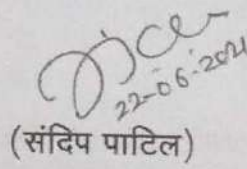 22-06-2021
(संदिप पाटिल)